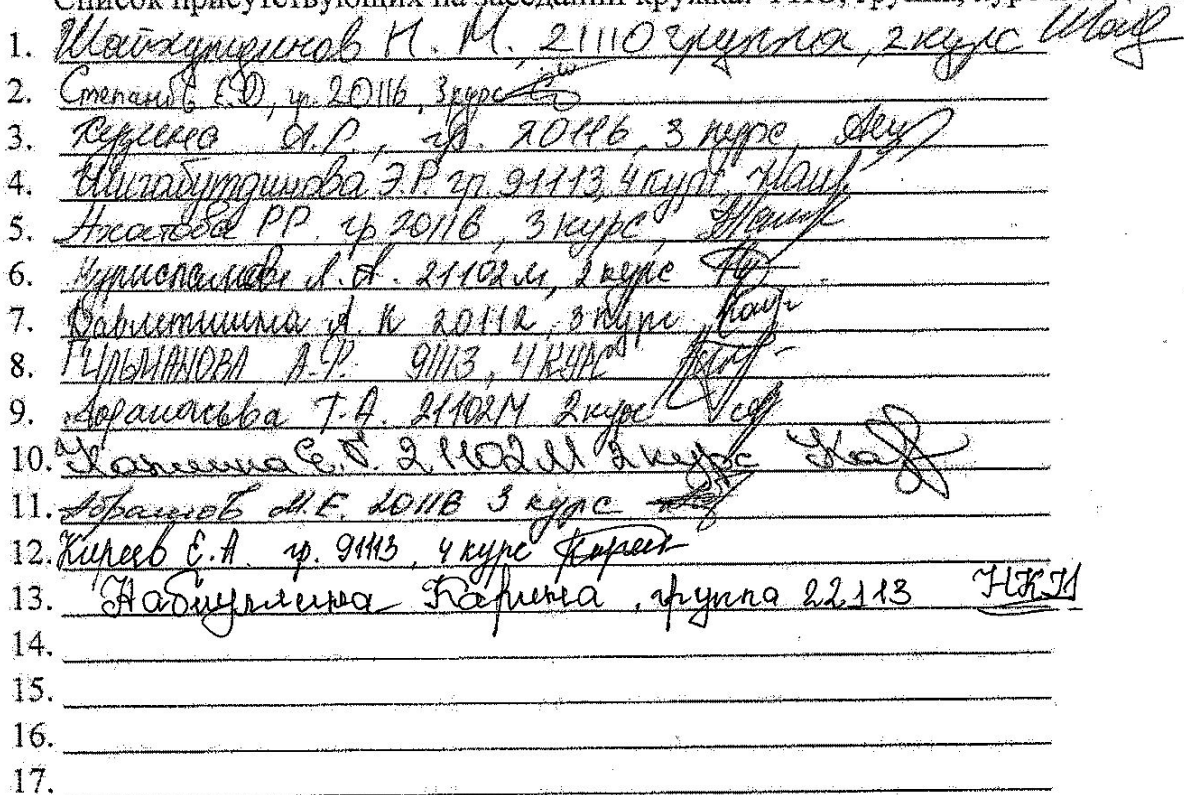 Список присутствующих на заседании кружка:
1. Шайхутдинов Н. М., 21110 группа, 2 курс
2. Степанов Е.Д, гр. 2011б, 3 курс
3. А.Р., гр. 2011б, 3 курс,
4. Шигабутдинова Э.Р. гр. 91113, 4 курс
5. Ахатова РР. гр 2011в, 3 курс,
6. Нурисламова А. А. 21102м, 2 курс
7. Давлетшина А. К 20112, 3 курс
8. ГИЛЬМАНОВА А.Р. 91113, 4 КУРС
9. Афанасьва Т.А. 21102М 2 курс
10. Е. 21102М 2 курс
11. Абрамов М.Е. 2011в 3 курс
12. Киреев Е.А. гр. 91113, 4 курс
13. Набиуллина Карина, группа 22113 НКИ
14.
15.
16.
17.